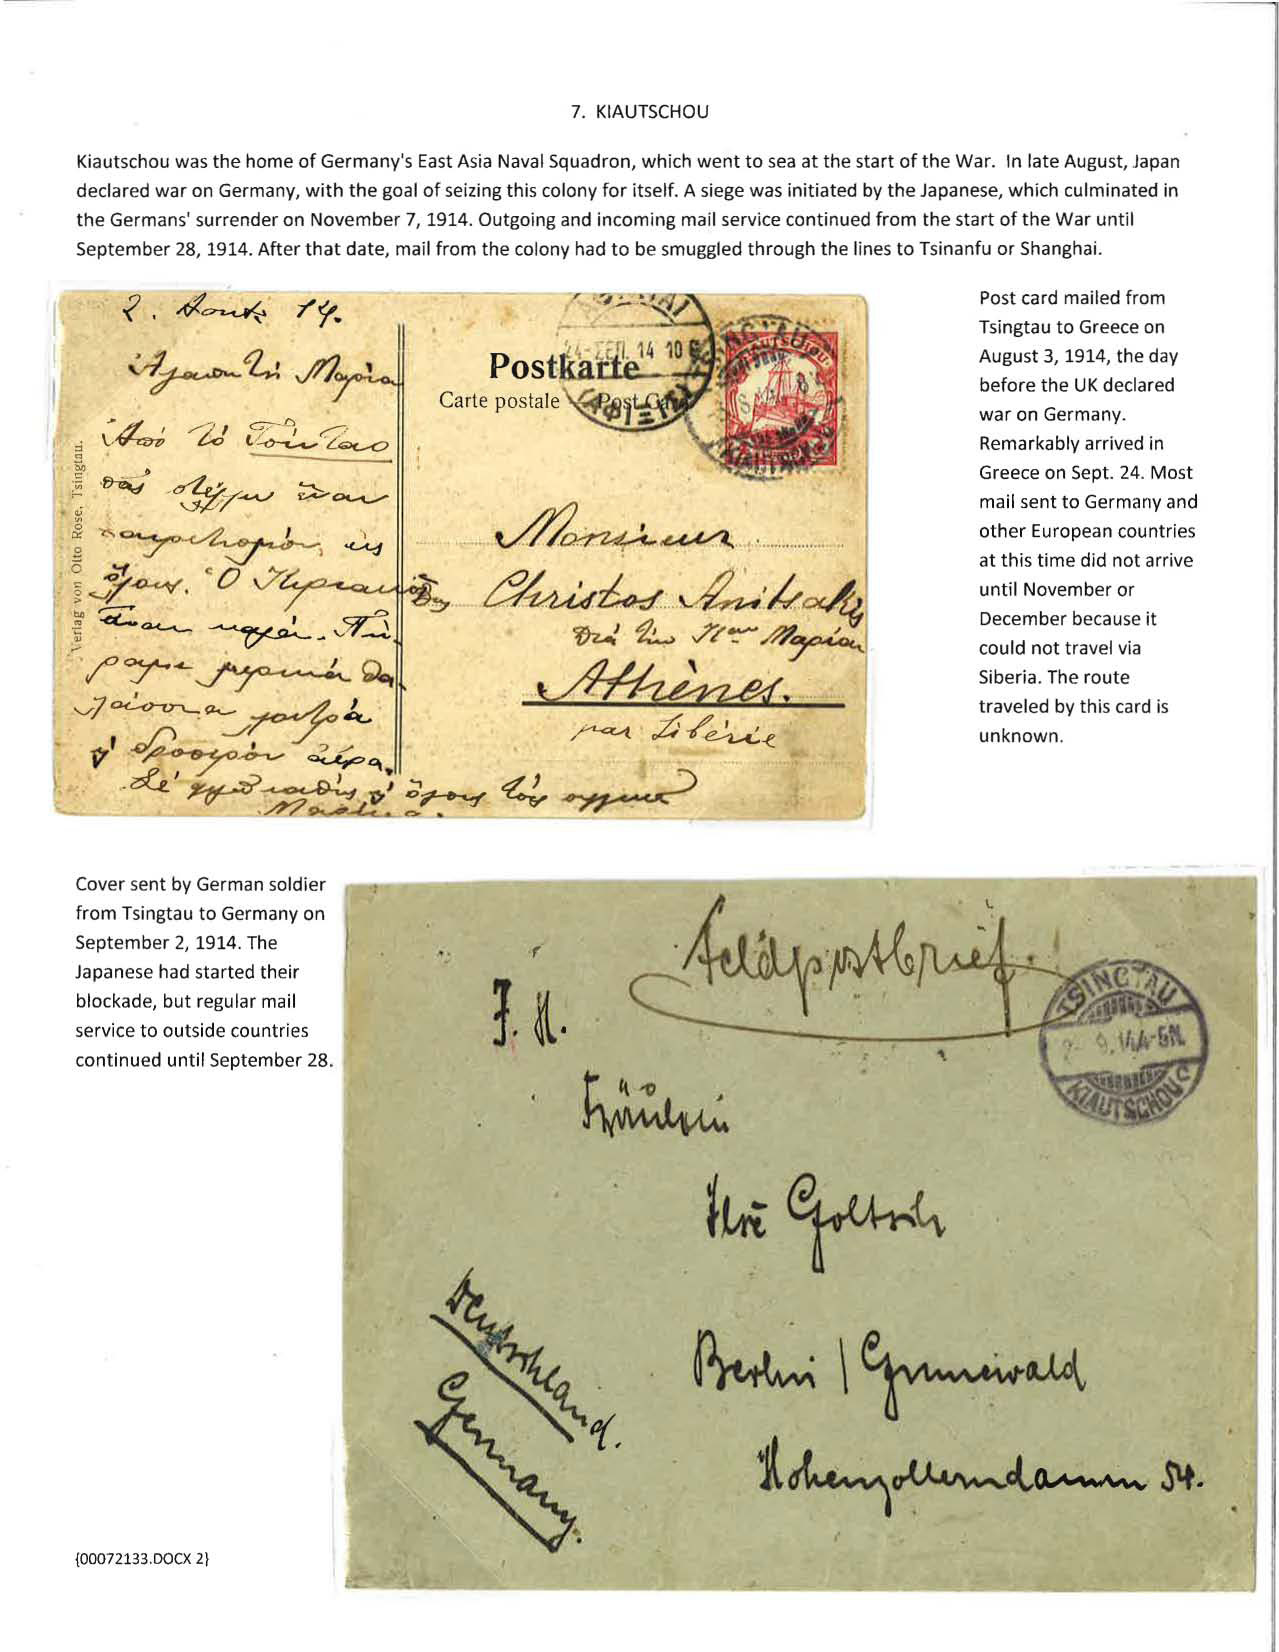 7. KIAUTSCHOU
Kiautschou was the home of Germany's East Asia Naval Squadron, which went to sea at the start of the War. In late August, Japan
declared war on Germany, with the goal of seizing this colony for itself. A siege was initiated by the Japanese, which culminated in
the Germans' surrender on November 7, 1914. Outgoing and incoming mail service continued from the start of the War until
September 28, 1914. After that date, mail from the colony had to be smuggled through the lines to Tsinanfu or Shanghai.
2. Aout. 14.
Ἀγαπητή Μαρία
Ἀπό τό Τσίνταο
σᾶς στέλλω ἕναν
χαιρετισμόν, εἰς
ὅλους. Ὁ
εἶναι καλά.
δροσερόν ἀέρα.
Verlag von Otto Rose, Tsingtau.
Postkarte
Carte postale – Post Card
24-ΣΕΠ. 14 10
(ΑΦΙΞΙΣ)
TSINGTAU
KIAUTSCHOU
Monsieur
Christos Anitsakis
διά τήν Μαρίαν
Athènes.
par Sibérie
Post card mailed from
Tsingtau to Greece on
August 3, 1914, the day
before the UK declared
war on Germany.
Remarkably arrived in
Greece on Sept. 24. Most
mail sent to Germany and
other European countries
at this time did not arrive
until November or
December because it
could not travel via
Siberia. The route
traveled by this card is
unknown.
Cover sent by German soldier
from Tsingtau to Germany on
September 2, 1914. The
Japanese had started their
blockade, but regular mail
service to outside countries
continued until September 28.
Feldpostbrief.
TSINGTAU
2- 9.14 4-5N.
KIAUTSCHOU
Fräulein
Ilse Goltsch
Deutschland.
Germany.
Berlin / Grunewald
Hohenzollerndamm 54.
{00072133.DOCX 2}